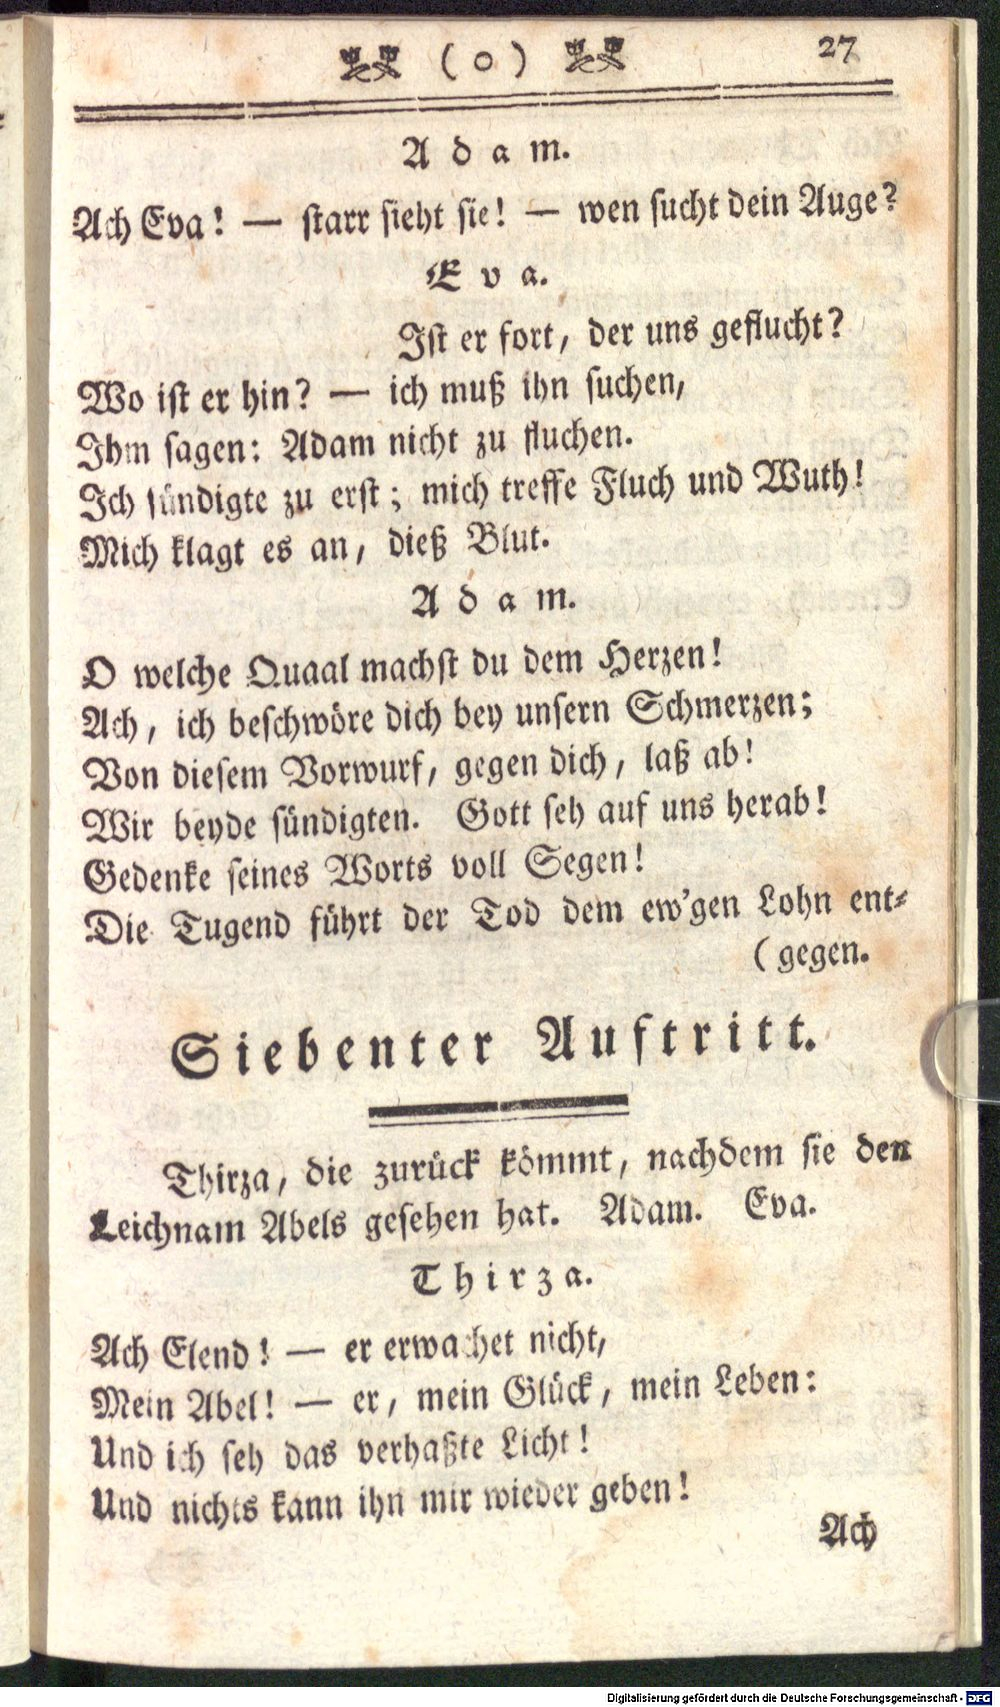 ( o ) 27
Adam.
Ach Eva! — starr sieht sie! — wen sucht dein Auge?
Eva.
Ist er fort, der uns geflucht?
Wo ist er hin? — ich muß ihn suchen,
Ihm sagen: Adam nicht zu fluchen.
Ich sündigte zu erst; mich treffe Fluch und Wuth!
Mich klagt es an, dieß Blut.
Adam.
O welche Quaal machst du dem Herzen!
Ach, ich beschwöre dich bey unsern Schmerzen;
Von diesem Vorwurf, gegen dich, laß ab!
Wir beyde sündigten. Gott seh auf uns herab!
Gedenke seines Worts voll Segen!
Die Tugend führt der Tod dem ew'gen Lohn ent-
(gegen.
Siebenter Auftritt.
Thirza, die zurück kömmt, nachdem sie den
Leichnam Abels gesehen hat. Adam. Eva.
Thirza.
Ach Elend! — er erwachet nicht,
Mein Abel! — er, mein Glück, mein Leben:
Und ich seh das verhaßte Licht!
Und nichts kann ihn mir wieder geben!
Ach
Digitalisierung gefördert durch die Deutsche Forschungsgemeinschaft - DFG